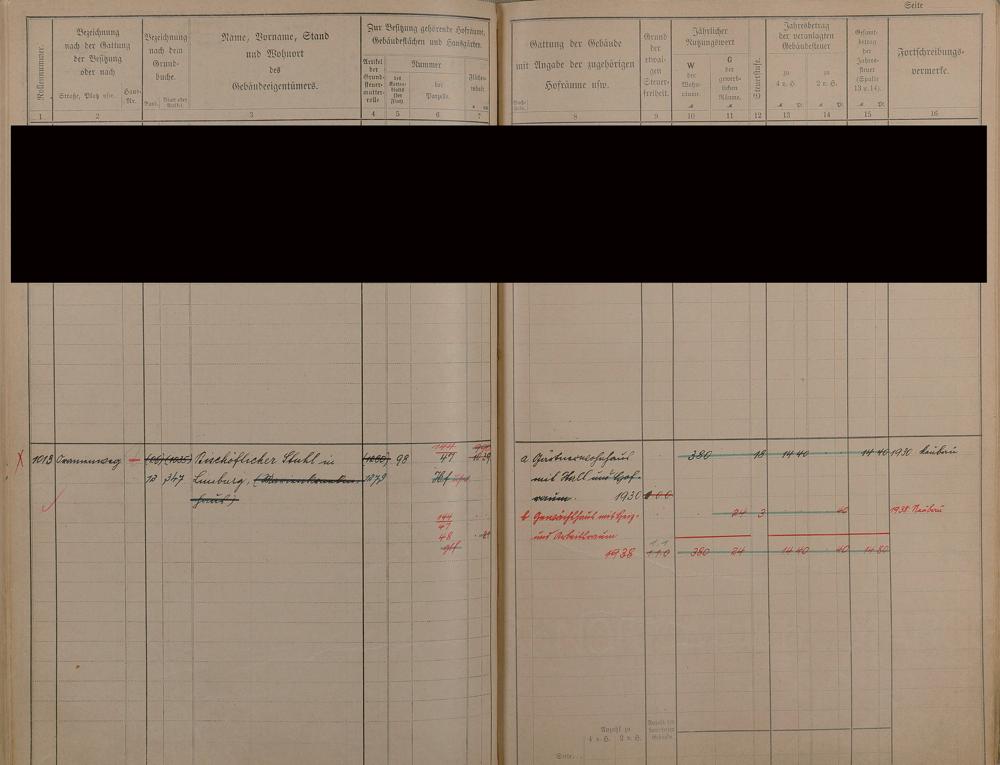 Seite
Rollennummer.
Bezeichnung
nach der Gattung
der Besitzung
oder nach
Straße, Platz usw.
Haus-
Nr.
Bezeichnung
nach dem
Grund-
buche.
Band.
Name, Vorname, Stand
und Wohnort
des
Gebäudeeigentümers.
Zur Besitzung gehörende Hofräume,
Gebäudeflächen und Hausgärten.
Artikel
der
Grund-
steuer-
mutter-
rolle
Nummer
des
der
Parzelle.
1 2 3 4 5 6 7
1013 Oranienweg
13 347
Bischöflicher Stuhl in
Limburg,
1379
98
47
144
47
48
Gattung der Gebäude
mit Angabe der zugehörigen
Hofräume usw.
Grund
der
etwai-
gen
Steuer-
freiheit.
Jährlicher
Nutzungswert
W
der
Wohn-
räume.
G
der
gewerb-
lichen
Räume.
Steuerstufe.
Jahresbetrag
der veranlagten
Gebäudesteuer
zu
4 v. H.
zu
2 v. H.
Gesamt-
betrag
der
Jahres-
steuer
(Spalte
13 u. 14).
Fortschreibungs-
vermerke.
8 9 10 11 12 13 14 15 16
a Gärtnerwohnhaus
mit Stall und Hof-
raum. 1930
380 18 14 40 14 40 1930 Neubau
b Gewächshaus mit Heiz-
und Arbeitsraum
24 3 40 1938 Neubau
1938 1.1
380 24 14 40 40 14 80
Anzahl zu
4 v. H. 2 v. H.
Seite: